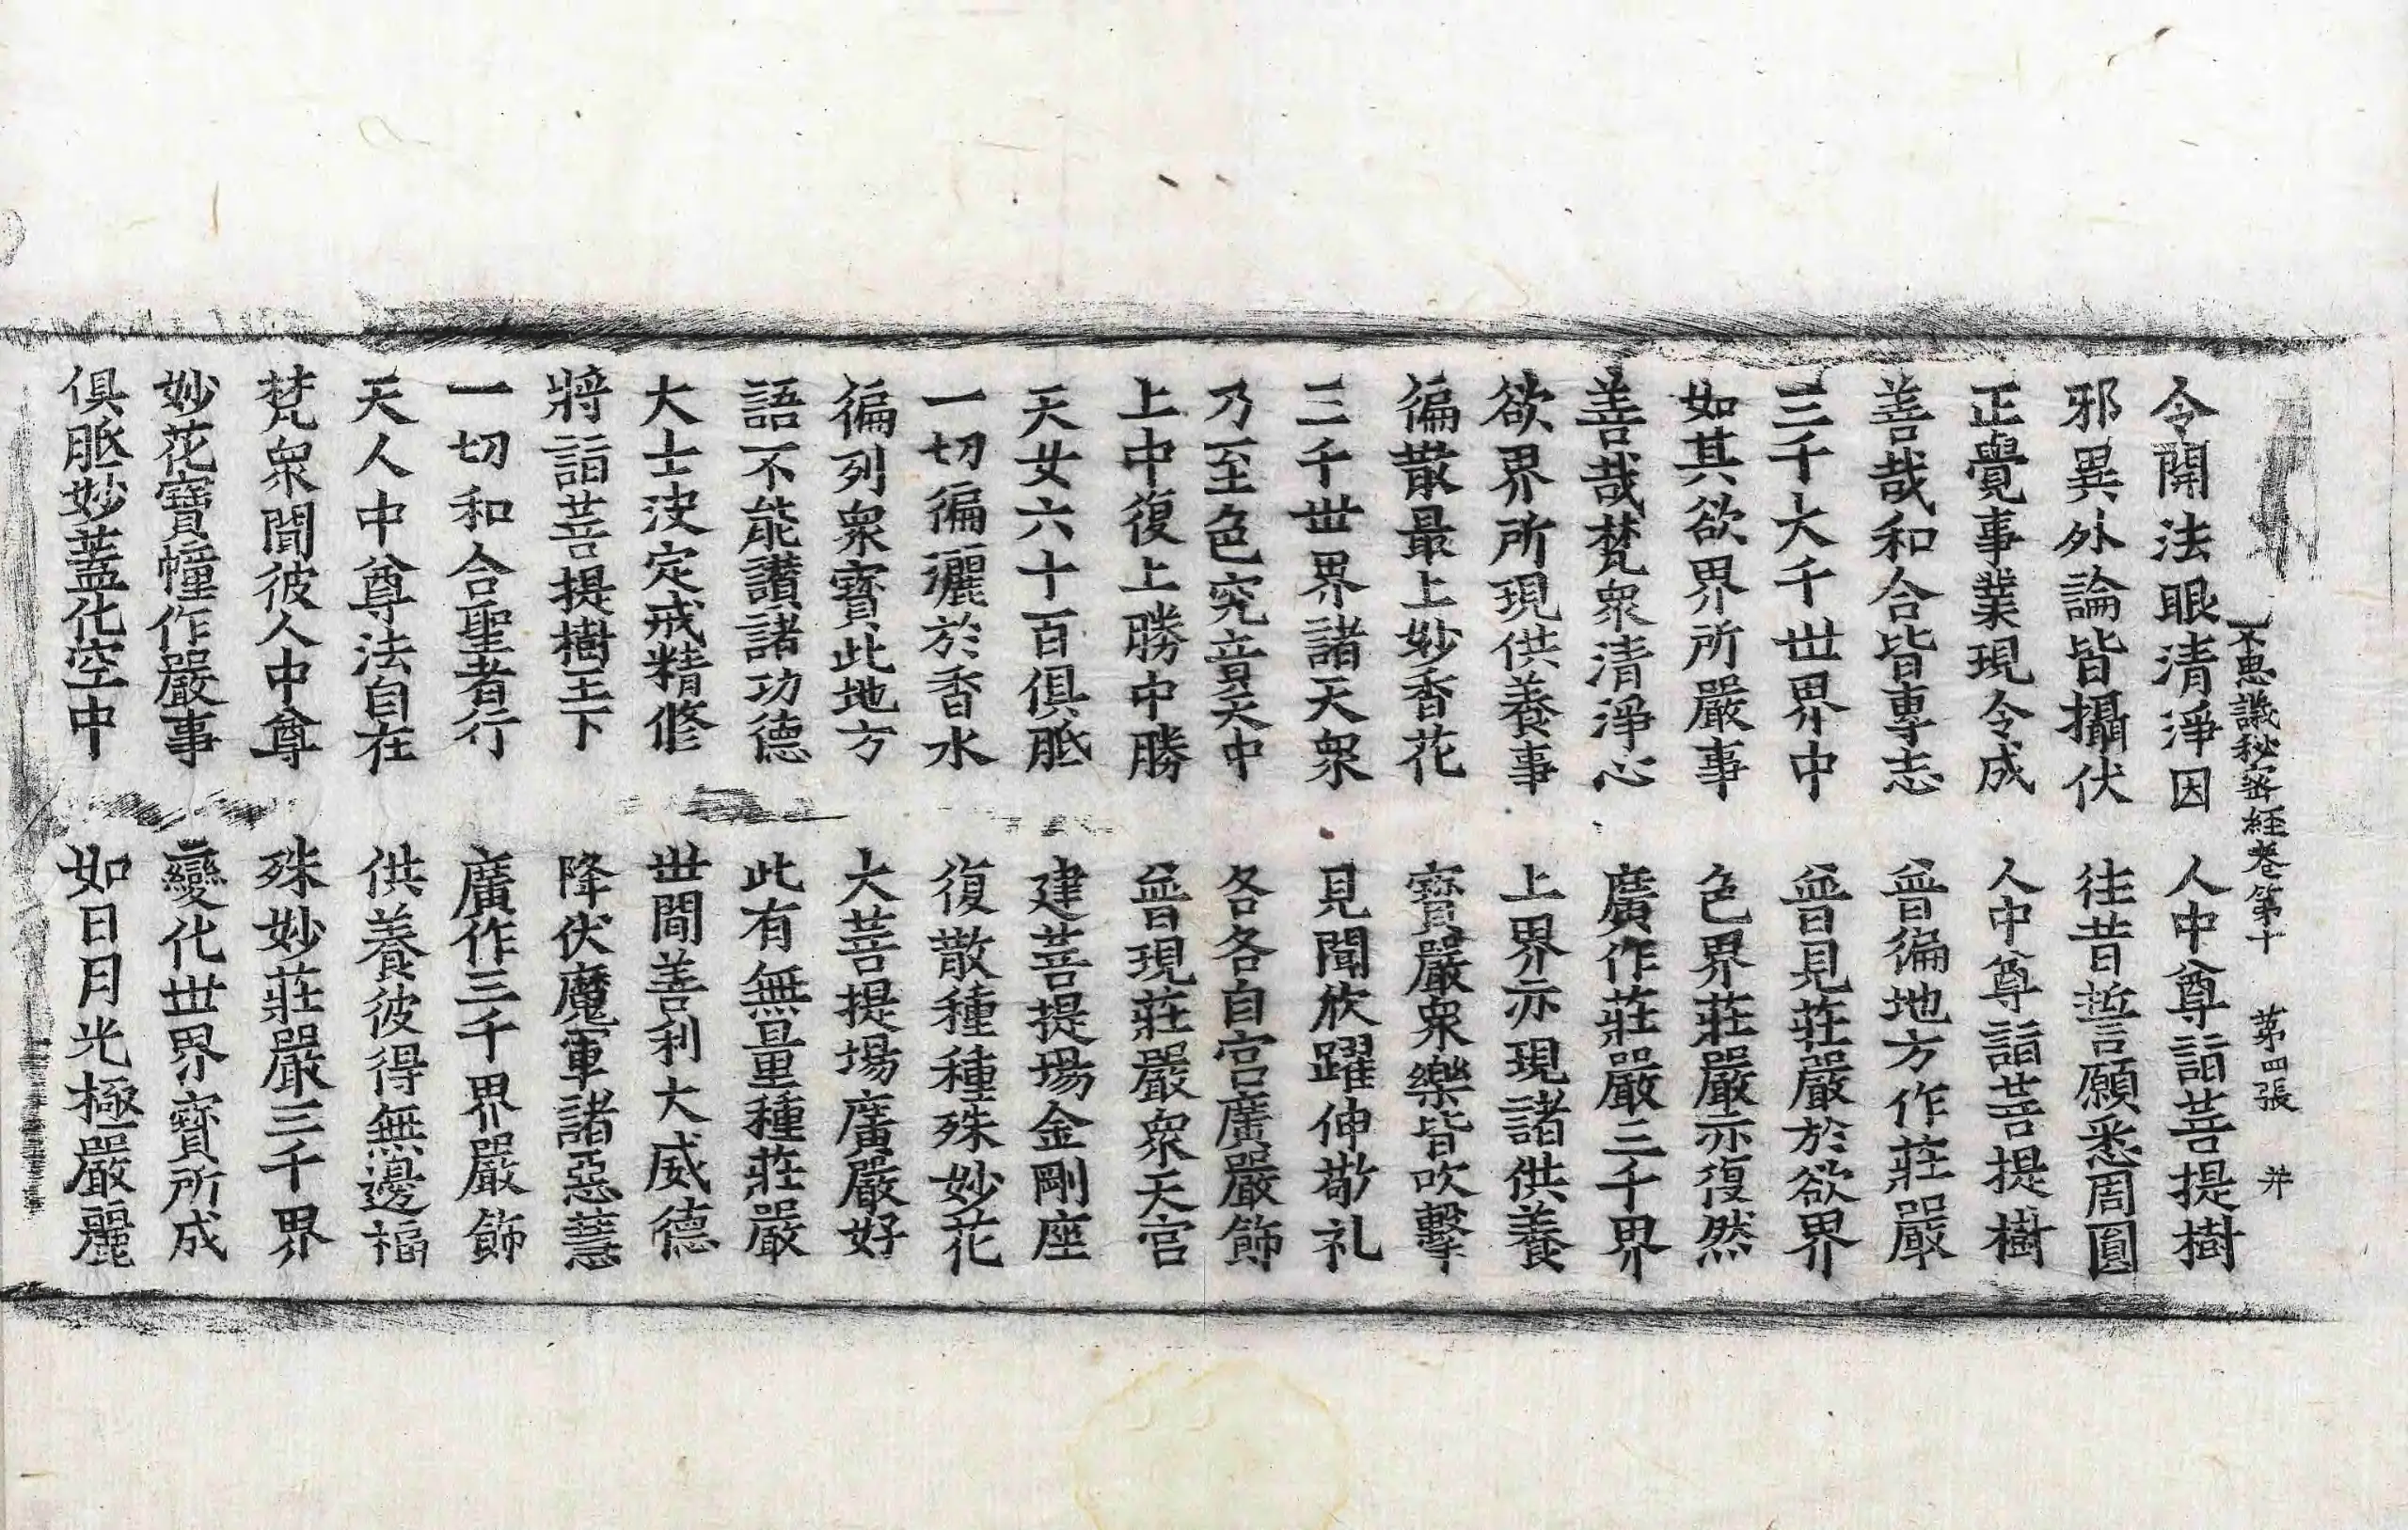 不思議秘密經卷第十 第四張 并
令開法眼清淨因 人中尊詣菩提樹
邪異外論皆攝伏 往昔誓願悉周圓
正覺事業現令成 人中尊詣菩提樹
善哉和合皆專志 普徧地方作莊嚴
三千大千世界中 普見莊嚴於欲界
如其欲界所嚴事 色界莊嚴亦復然
善哉梵衆清淨心 廣作莊嚴三千界
欲界所現供養事 上界亦現諸供養
徧散最上妙香花 寶嚴衆樂皆吹擊
三千世界諸天衆 見聞欣躍伸敬礼
乃至色究音天中 各各自宮廣嚴飾
上中復上勝中勝 普現莊嚴衆天宮
天女六十百俱胝 建菩提場金剛座
一切徧灑於香水 復散種種殊妙花
徧列衆寶此地方 大菩提場廣嚴好
語不能讚諸功德 此有無量種莊嚴
大士決定戒精修 世間善利大威德
將詣菩提樹王下 降伏魔軍諸惡慧
一切和合聖者行 廣作三千界嚴飾
天人中尊法自在 供養彼得無邊福
梵衆聞彼人中尊 殊妙莊嚴三千界
妙花寶幢作嚴事 變化世界寶所成
俱胝妙蓋化空中 如日月光極嚴麗